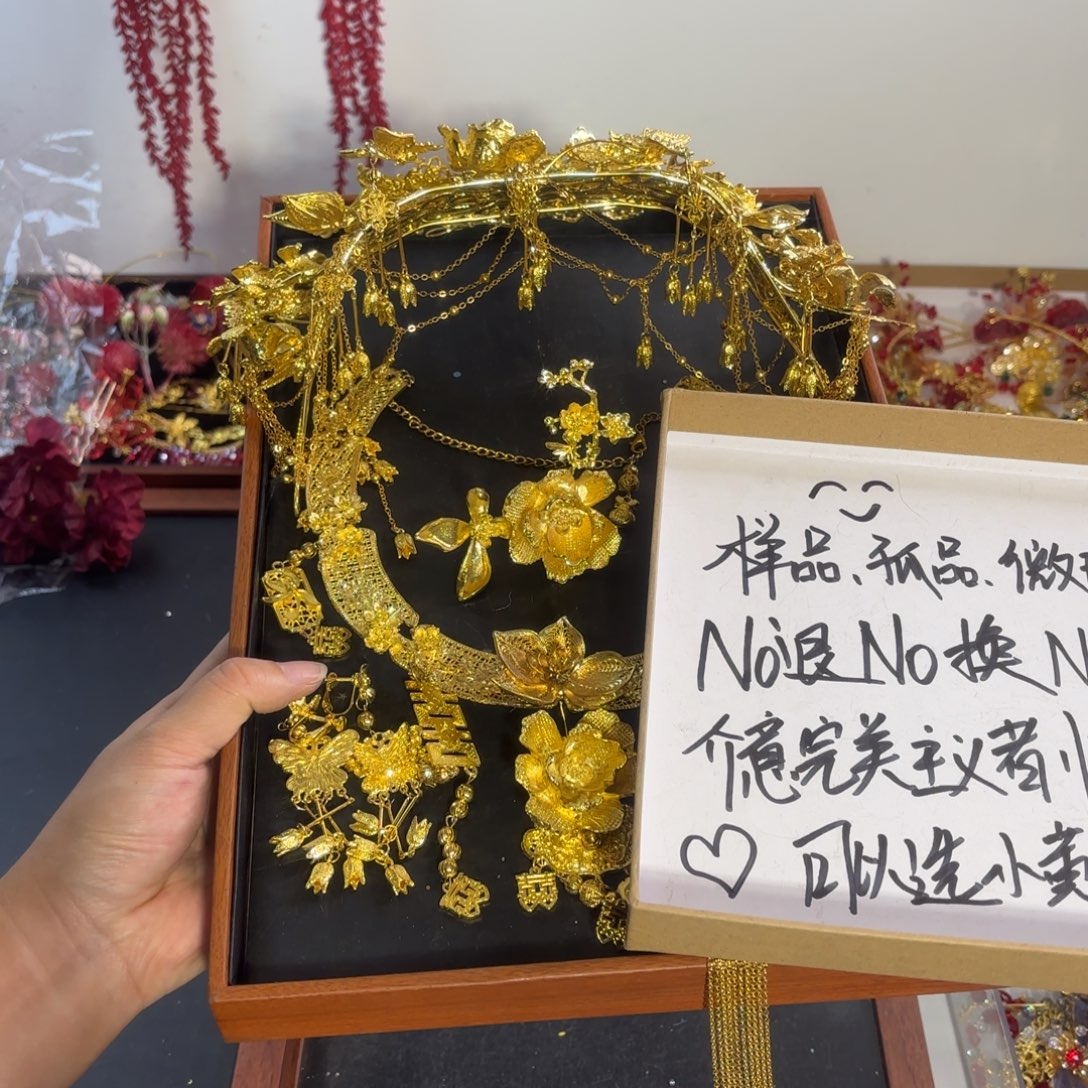 样品、孤品、微
No退No换N
介意完美主义者
♡ 可以选小